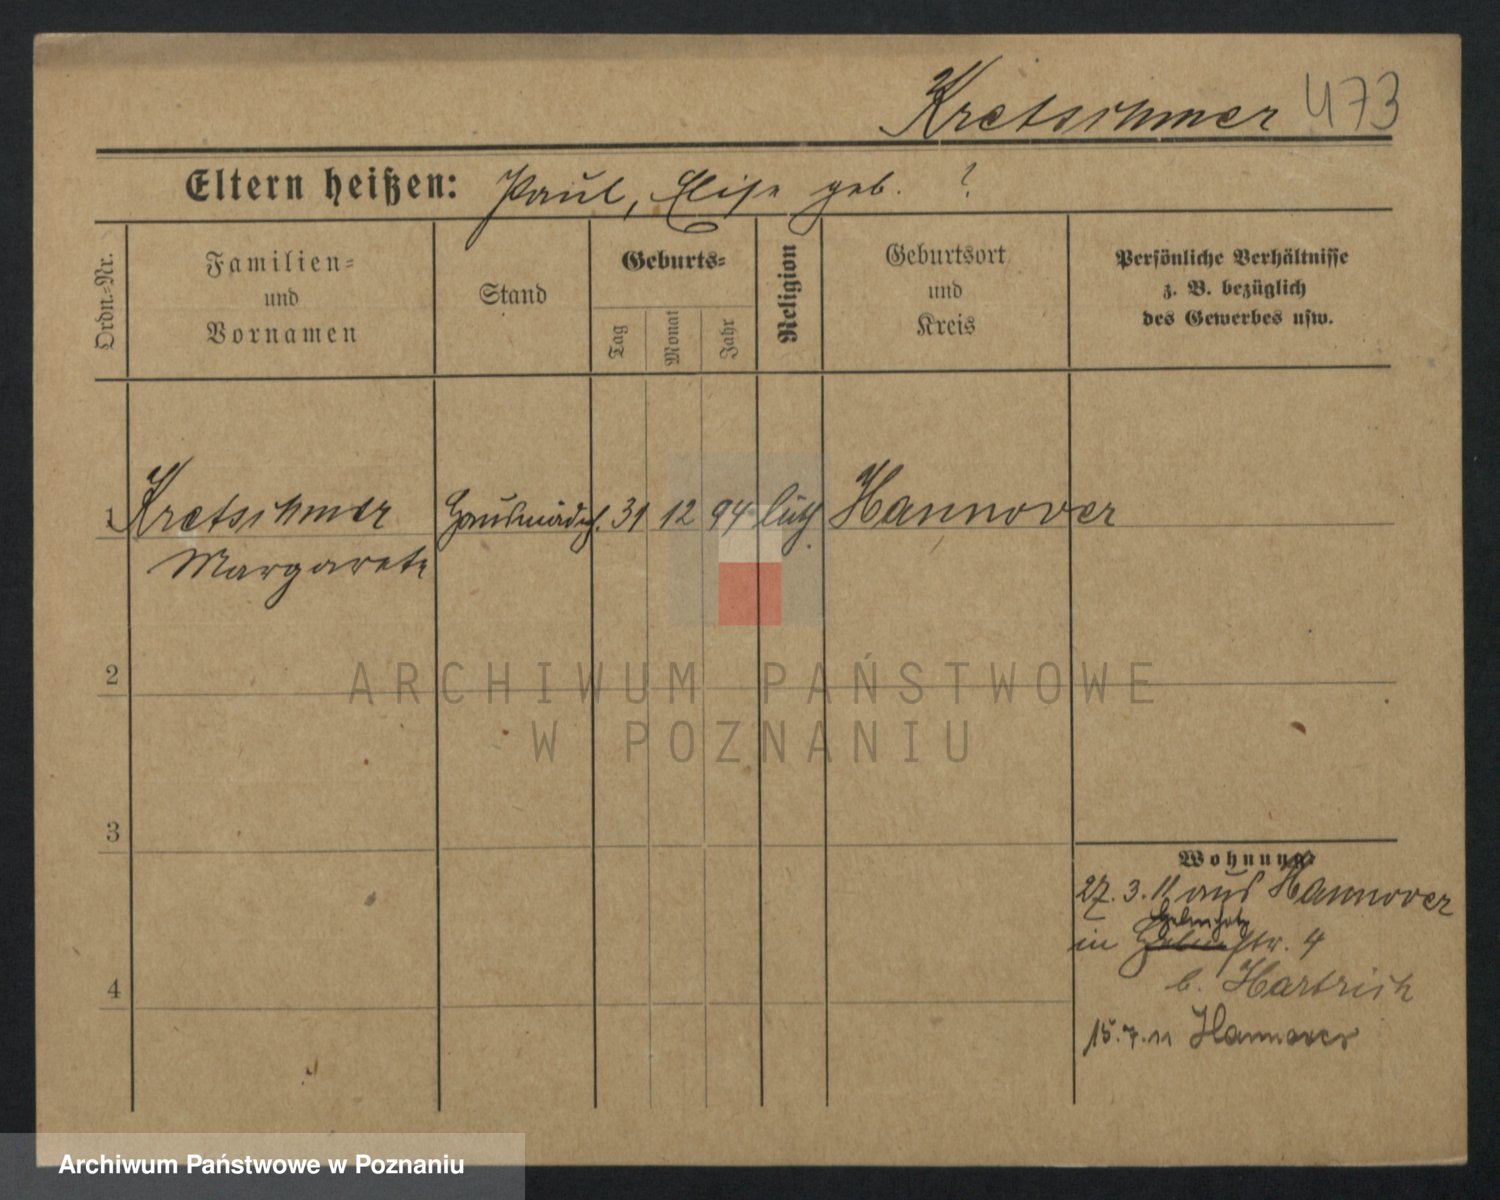 Kretschmer 473
Eltern heißen: Paul, Elise geb. ?
Ordn.=Nr.
Familien=
und
Vornamen
Stand
Geburts=
Tag
Monat
Jahr
Religion
Geburtsort
und
Kreis
Persönliche Verhältnisse
z. B. bezüglich
des Gewerbes usw.
1 Kretschmer Hausmädch. 31 12 94 luth. Hannover
Margarete
2
ARCHIWUM PAŃSTWOWE
W POZNANIU
3
Wohnung:
27. 3. 11 aus Hannover
Helmholz
in str. 4
b. Hartrich
4
15. 7. 11 Hannover
Archiwum Państwowe w Poznaniu